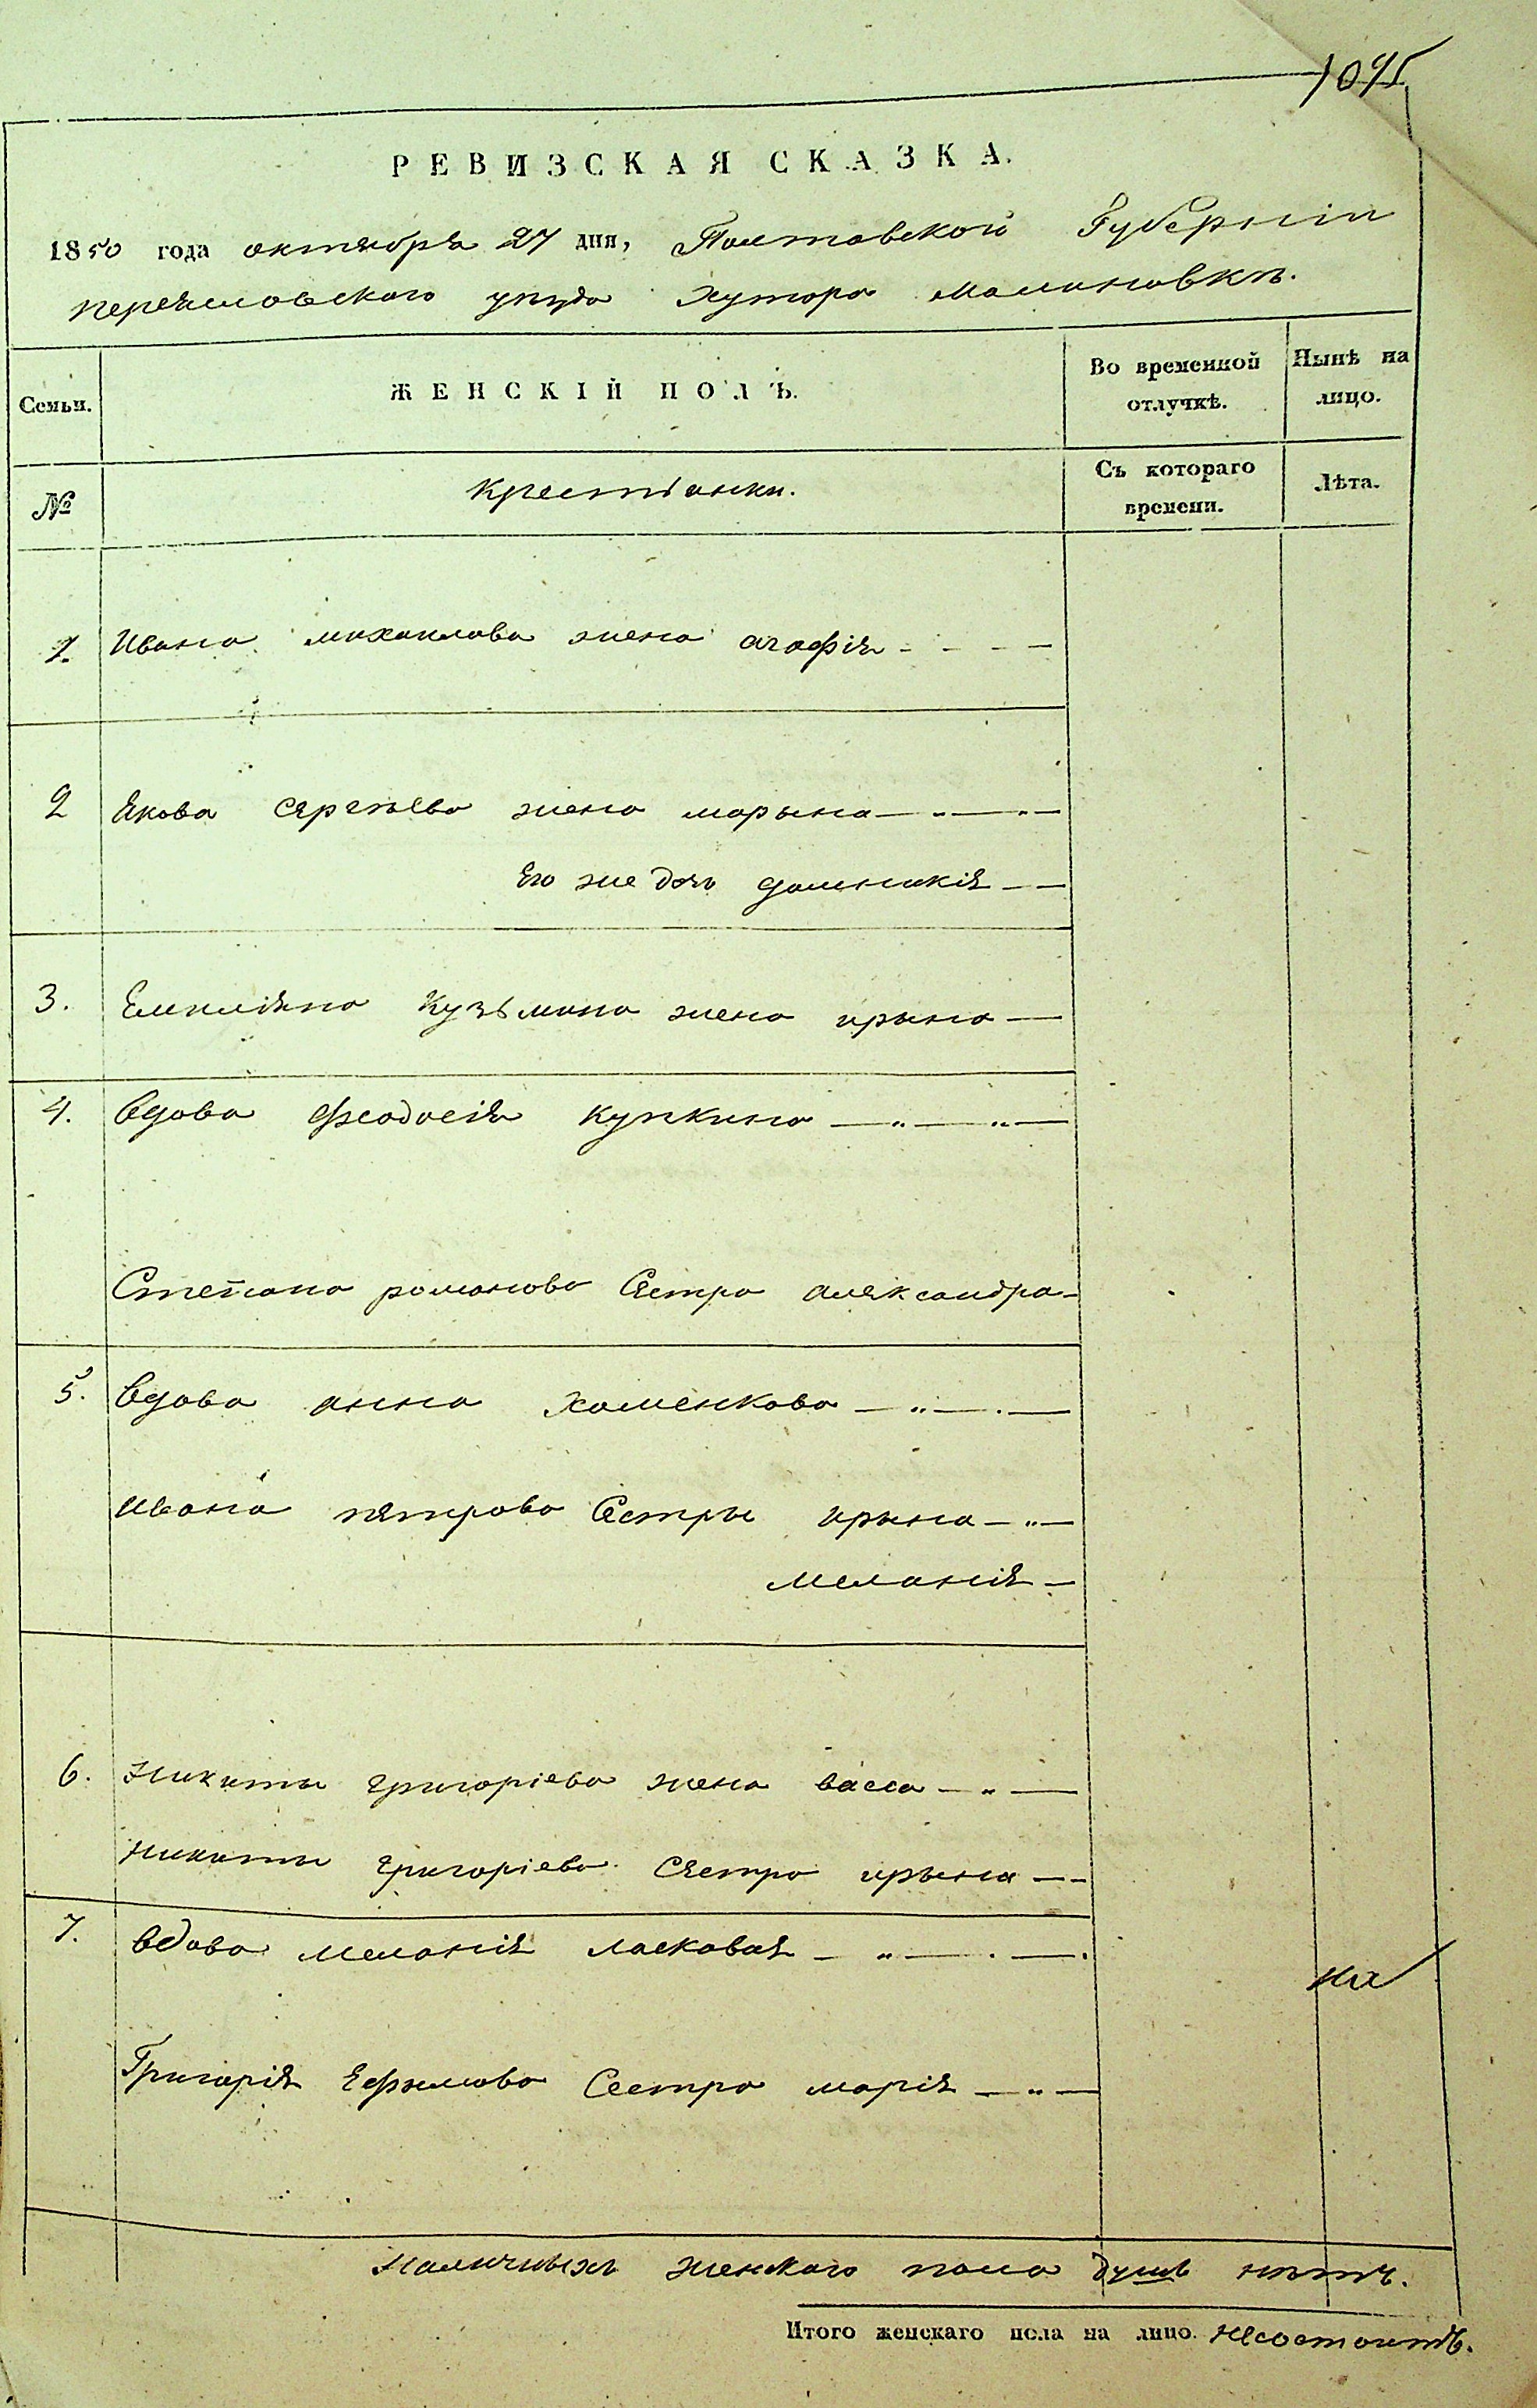 1095
РЕВИЗСКАЯ СКАЗКА.
1850 года октября 27 дня, Полтавской Губерніи
переяславского уѣзда хутора Малиновки.
Семьи.
ЖЕНСКІЙ ПОЛЪ.
Во временной отлучкѣ.
Нынѣ на лицо.
№
Крестьянки.
Съ котораго времени.
Лѣта.
1. Ивана михаилова жена агафія
2 Якова Сергѣева жена марына
Его же дочь домникія
3. Емиліяна Кузьмина жена ирына
4. Вдова Феодосія
Степана романова Сестра александра
5. Вдова анна хоменкова
Ивана петрова Сестры ирына
Меланія
6. Никиты григоріева жена васса
Никиты григоріева Сестра ирына
7. вдова Меланія ласковая
Григорія Ефимова Сестра марія
на
Наличныхъ женскаго пола душъ нѣтъ.
Итого женскаго пола на лицо. несостоитъ.